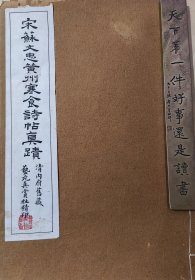 宋蘇文忠黃州寒食詩帖真蹟
清內府舊藏
天下第一件好事還是讀書